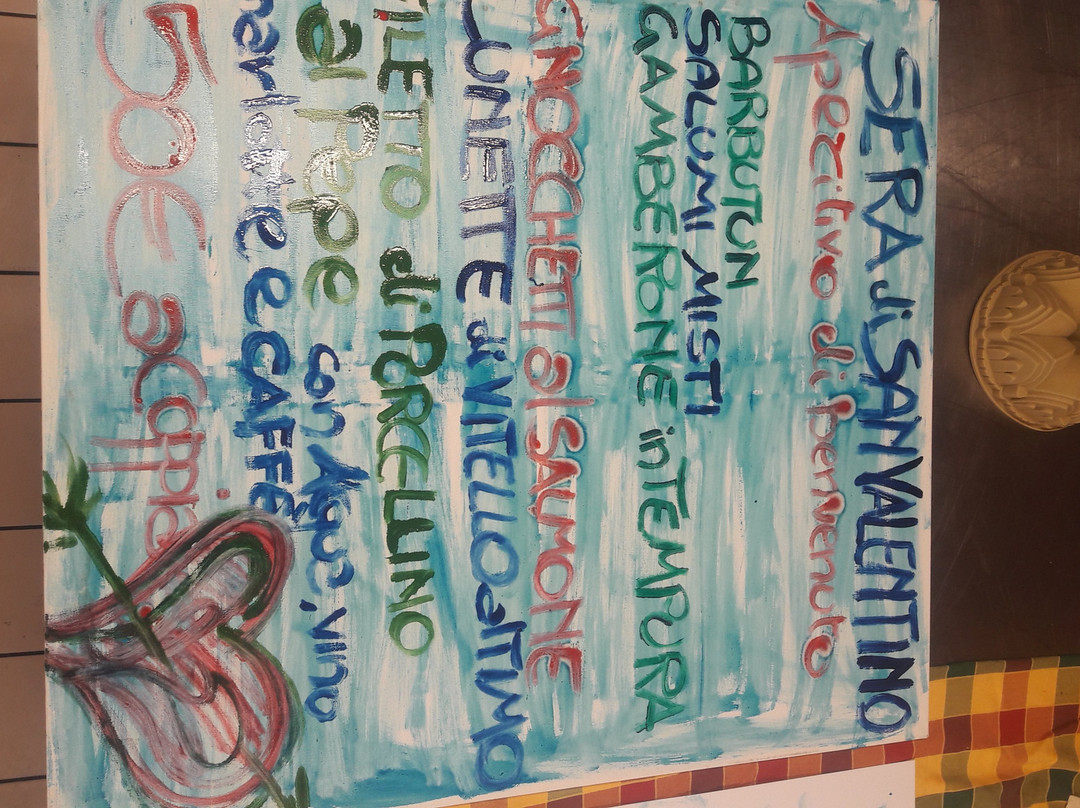 SERA di SAN VALENTINO
Aperitivo di benvenuto
BARBUTUN
SALUMI MISTI
GAMBERONE in TEMPURA
GNOCCHETTI al SALMONE
LUNETTE di VITELLO al TIMO
FILETTO di PORCELLINO
al Pepe
con Acqua, vino
harlotte e CAFFÈ
50€ a coppia